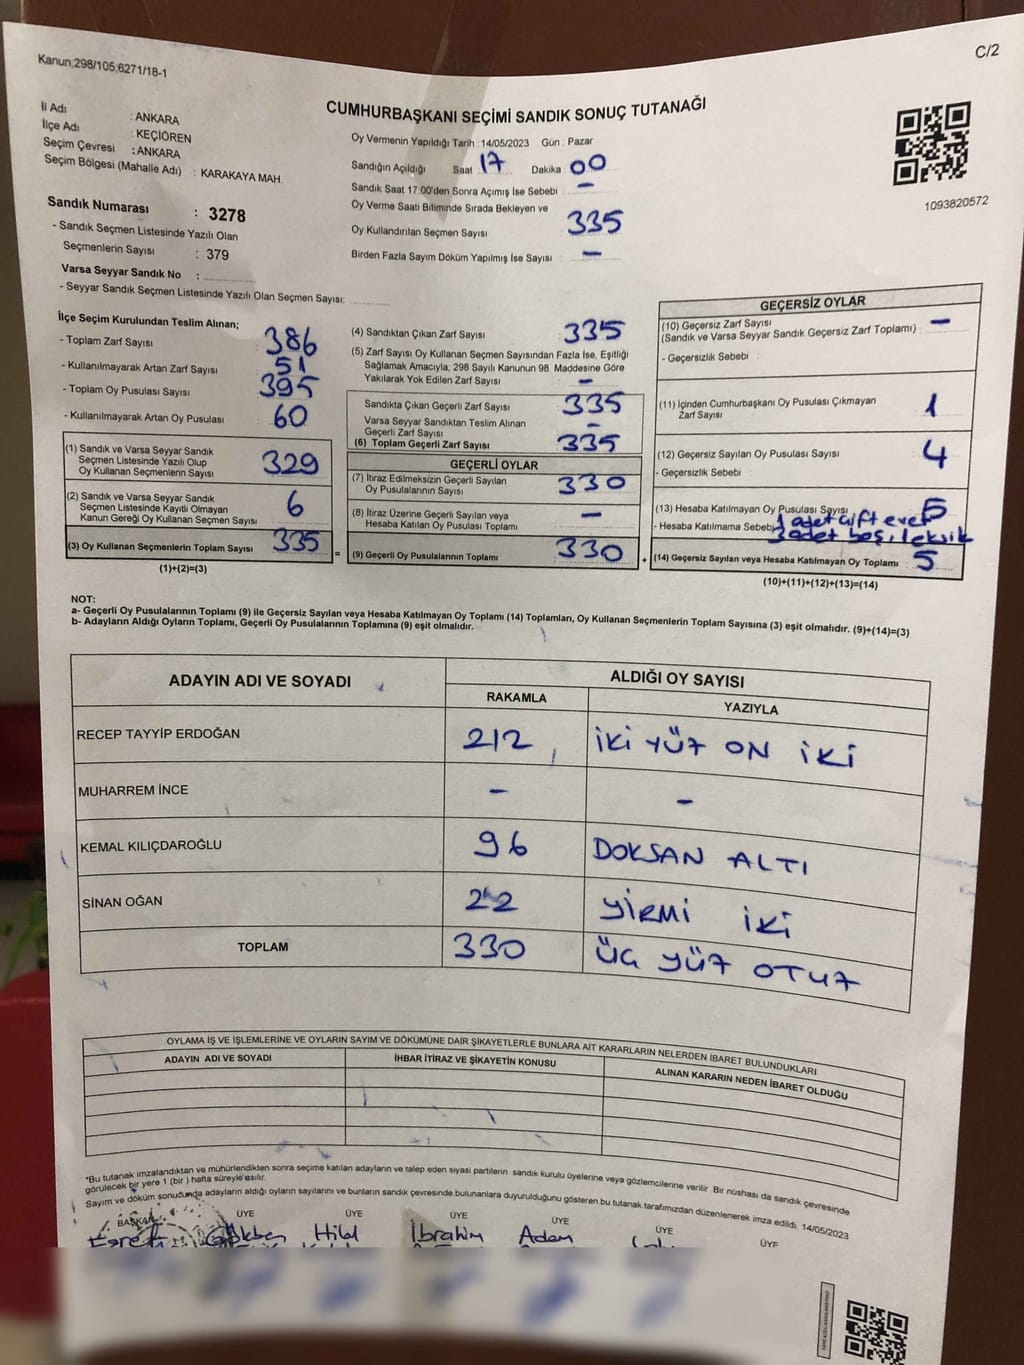 Kanun;298/105;6271/18-1
C/2
CUMHURBAŞKANI SEÇİMİ SANDIK SONUÇ TUTANAĞI
İl Adı : ANKARA
İlçe Adı : KEÇİÖREN
Seçim Çevresi : ANKARA
Seçim Bölgesi (Mahalle Adı) : KARAKAYA MAH.
Sandık Numarası : 3278
- Sandık Seçmen Listesinde Yazılı Olan
Seçmenlerin Sayısı : 379
Varsa Seyyar Sandık No :
- Seyyar Sandık Seçmen Listesinde Yazılı Olan Seçmen Sayısı:
Oy Vermenin Yapıldığı Tarih :14/05/2023 Gün : Pazar
Sandığın Açıldığı Saat 17 Dakika 00
Sandık Saat 17:00'den Sonra Açımış İse Sebebi –
Oy Verme Saati Bitiminde Sırada Bekleyen ve
Oy Kullandırılan Seçmen Sayısı 335
Birden Fazla Sayım Döküm Yapılmış İse Sayısı –
1093820572
İlçe Seçim Kurulundan Teslim Alınan;
- Toplam Zarf Sayısı 386
- Kullanılmayarak Artan Zarf Sayısı 51
- Toplam Oy Pusulası Sayısı 395
- Kullanılmayarak Artan Oy Pusulası 60
(1) Sandık ve Varsa Seyyar Sandık
Seçmen Listesinde Yazılı Olup
Oy Kullanan Seçmenlerin Sayısı 329
(2) Sandık ve Varsa Seyyar Sandık
Seçmen Listesinde Kayıtlı Olmayan
Kanun Gereği Oy Kullanan Seçmen Sayısı 6
(3) Oy Kullanan Seçmenlerin Toplam Sayısı 335 =
(1)+(2)=(3)
(4) Sandıktan Çıkan Zarf Sayısı 335
(5) Zarf Sayısı Oy Kullanan Seçmen Sayısından Fazla İse, Eşitliği
Sağlamak Amacıyla; 298 Sayılı Kanunun 98. Maddesine Göre
Yakılarak Yok Edilen Zarf Sayısı –
Sandıkta Çıkan Geçerli Zarf Sayısı 335
Varsa Seyyar Sandıktan Teslim Alınan
Geçerli Zarf Sayısı –
(6) Toplam Geçerli Zarf Sayısı 335
GEÇERLİ OYLAR
(7) İtiraz Edilmeksizin Geçerli Sayılan
Oy Pusulalarının Sayısı 330
(8) İtiraz Üzerine Geçerli Sayılan veya
Hesaba Katılan Oy Pusulası Toplamı –
(9) Geçerli Oy Pusulalarının Toplamı 330 +
GEÇERSİZ OYLAR
(10) Geçersiz Zarf Sayısı
(Sandık ve Varsa Seyyar Sandık Geçersiz Zarf Toplamı) : –
- Geçersizlik Sebebi :
(11) İçinden Cumhurbaşkanı Oy Pusulası Çıkmayan
Zarf Sayısı 1
(12) Geçersiz Sayılan Oy Pusulası Sayısı 4
- Geçersizlik Sebebi :
(13) Hesaba Katılmayan Oy Pusulası Sayısı 5
- Hesaba Katılmama Sebebi 1 adet çift evet
3 adet boş, 1 eksik
(14) Geçersiz Sayılan veya Hesaba Katılmayan Oy Toplamı 5
(10)+(11)+(12)+(13)=(14)
NOT:
a- Geçerli Oy Pusulalarının Toplamı (9) ile Geçersiz Sayılan veya Hesaba Katılmayan Oy Toplamı (14) Toplamları, Oy Kullanan Seçmenlerin Toplam Sayısına (3) eşit olmalıdır. (9)+(14)=(3)
b- Adayların Aldığı Oyların Toplamı, Geçerli Oy Pusulalarının Toplamına (9) eşit olmalıdır.
ADAYIN ADI VE SOYADI ALDIĞI OY SAYISI
RAKAMLA YAZIYLA
RECEP TAYYİP ERDOĞAN 212 İKİ YÜZ ON İKİ
MUHARREM İNCE – –
KEMAL KILIÇDAROĞLU 96 DOKSAN ALTI
SİNAN OĞAN 22 YİRMİ İKİ
TOPLAM 330 ÜÇ YÜZ OTUZ
OYLAMA İŞ VE İŞLEMLERİNE VE OYLARIN SAYIM VE DÖKÜMÜNE DAİR ŞİKAYETLERLE BUNLARA AİT KARARLARIN NELERDEN İBARET BULUNDUKLARI
ADAYIN ADI VE SOYADI İHBAR İTİRAZ VE ŞİKAYETİN KONUSU ALINAN KARARIN NEDEN İBARET OLDUĞU
*Bu tutanak imzalandıktan ve mühürlendikten sonra seçime katılan adayların ve talep eden siyasi partilerin sandık kurulu üyelerine veya gözlemcilerine verilir. Bir nüshası da sandık çevresinde
görülecek bir yere 1 (bir ) hafta süreyle asılır.
Sayım ve döküm sonucunda adayların aldığı oyların sayılarını ve bunların sandık çevresinde bulunanlara duyurulduğunu gösteren bu tutanak tarafımızdan düzenlenerek imza edildi. 14/05/2023
BAŞKAN ÜYE ÜYE ÜYE ÜYE ÜYE ÜYE
Gökben Hilal İbrahim Adem